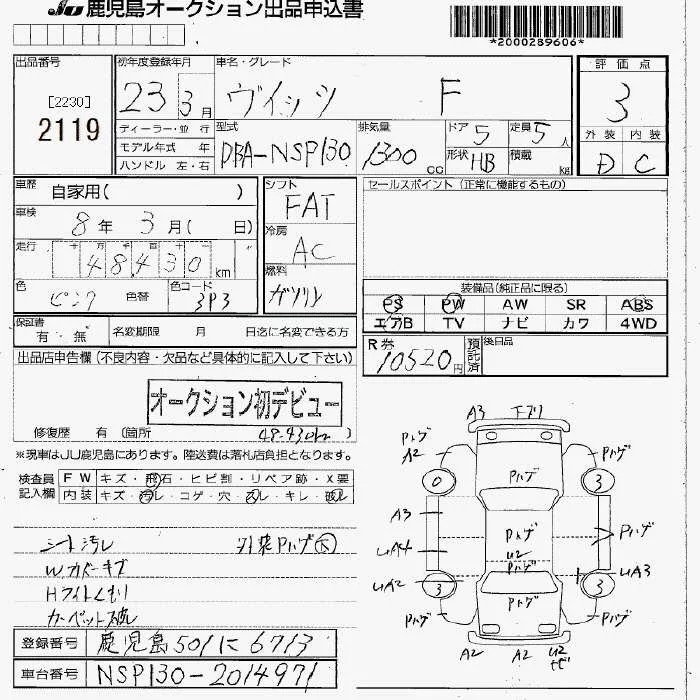 JU 鹿児島オークション出品申込書
*2000289606*
出品番号
[2230]
2119
初年度登録年月
23 3月
車名・グレード
ヴィッツ F
評価点
3
ディーラー・並行
モデル年式 年
ハンドル 左・右
型式
DBA-NSP130
排気量
1300cc
ドア 5
定員 5人
形状 HB
積載 kg
外装 内装
D C
車歴
自家用( )
車検
8年 3月( 日)
走行
十万千百十
48430km
色
ピンク
色替
色コード
3P3
シフト
FAT
冷房
AC
燃料
ガソリン
セールスポイント(正常に機能するもの)
装備品(純正品に限る)
PS PW AW SR ABS
エアB TV ナビ カワ 4WD
保証書
有・無
名変期限 月 日迄に名変できる方
R券
10520円
預託済
後日品
出品店申告欄(不良内容・欠品など具体的に記入して下さい)
オークション初デビュー
修復歴 有(箇所
48.430km
※現車はJU鹿児島にあります。陸送費は落札店負担となります。
検査員記入欄
FW キズ・飛石・ヒビ割・リペア跡・X要
内装 キズ・汚レ・コゲ・穴・スレ・キレ・破レ
シート汚レ
外装Pハゲ大
W.カバーキズ
Hライトくもり
カーペット破
登録番号
鹿児島501に6713
車台番号
NSP130-2014971
A3 下ブリ
Pハゲ
A2
Pハゲ
0
Pハゲ
3
A3
Pハゲ
U2
Pハゲ
UA4
Pハゲ
UA2
3
3
UA3
Pハゲ
Pハゲ
Pハゲ
A2
A2
U2